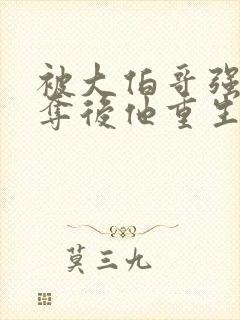 被大伯哥强
夺後他重生
莫三九